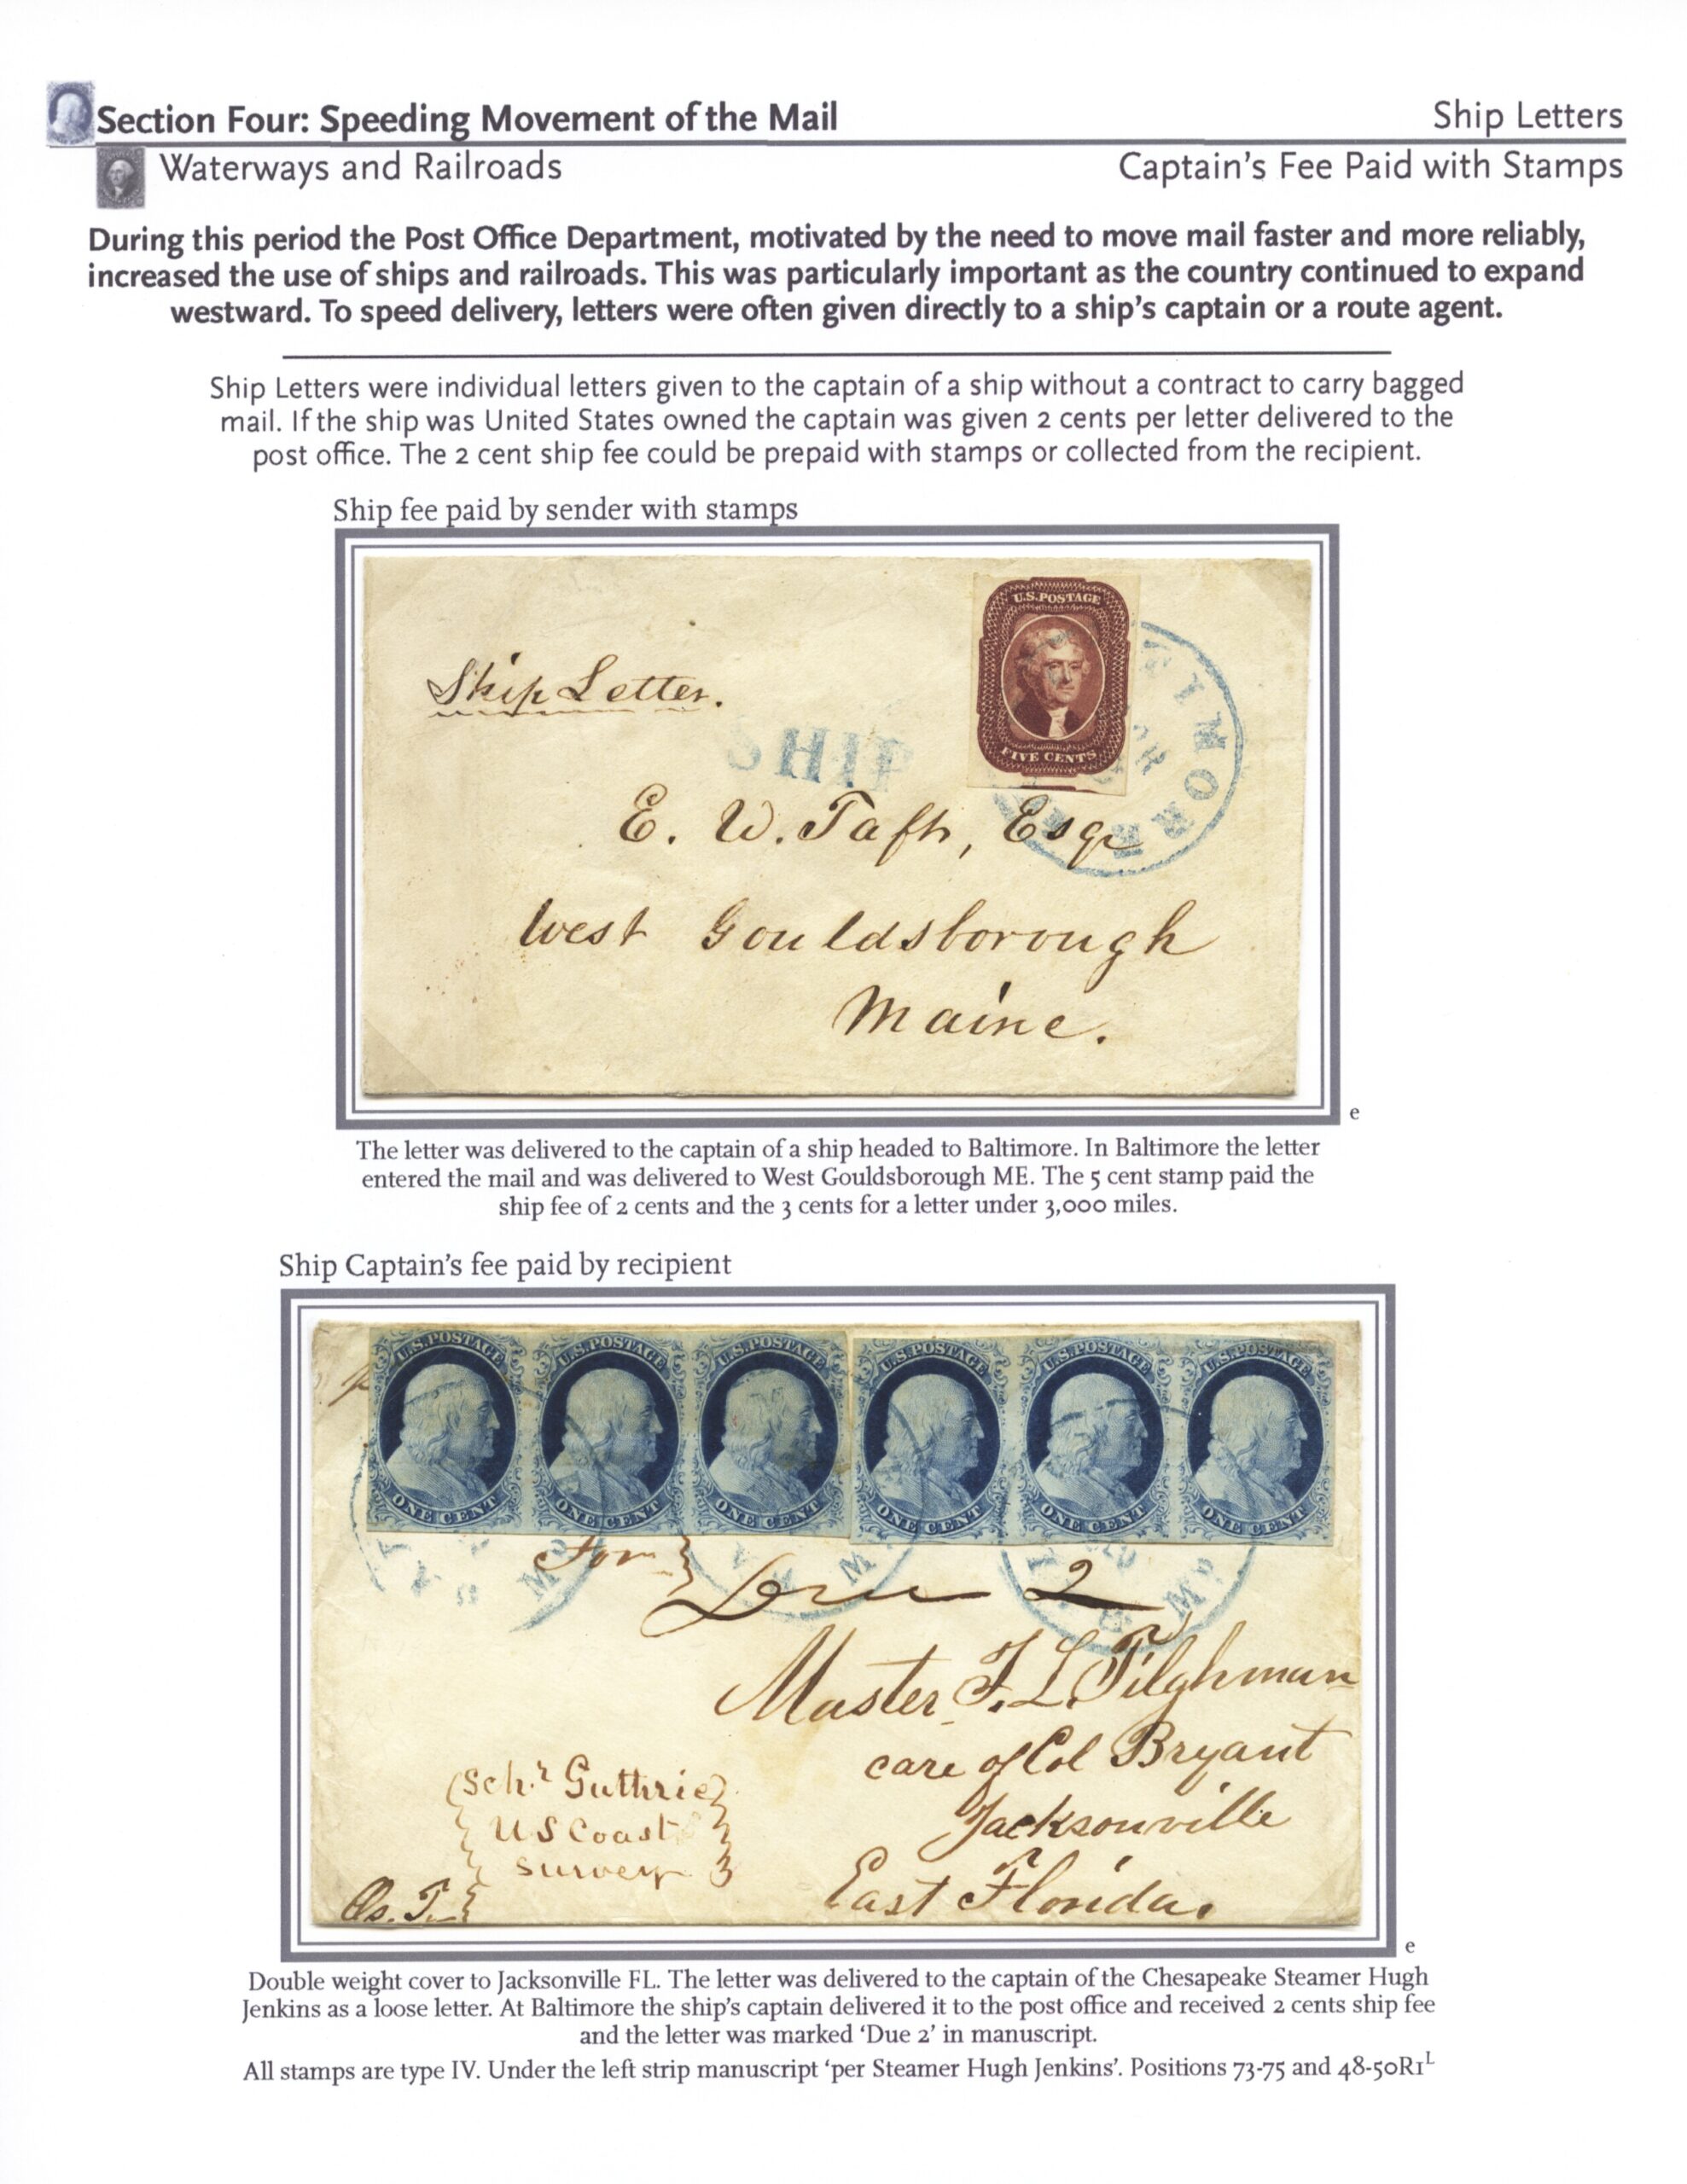 Section Four: Speeding Movement of the Mail
Ship Letters
Waterways and Railroads
Captain's Fee Paid with Stamps
During this period the Post Office Department, motivated by the need to move mail faster and more reliably,
increased the use of ships and railroads. This was particularly important as the country continued to expand
westward. To speed delivery, letters were often given directly to a ship's captain or a route agent.
Ship Letters were individual letters given to the captain of a ship without a contract to carry bagged
mail. If the ship was United States owned the captain was given 2 cents per letter delivered to the
post office. The 2 cent ship fee could be prepaid with stamps or collected from the recipient.
Ship fee paid by sender with stamps
U.S. POSTAGE
FIVE CENTS
Ship Letter.
SHIP
E. W. Taft, Esqr
West Gouldsborough
Maine.
e
The letter was delivered to the captain of a ship headed to Baltimore. In Baltimore the letter
entered the mail and was delivered to West Gouldsborough ME. The 5 cent stamp paid the
ship fee of 2 cents and the 3 cents for a letter under 3,000 miles.
Ship Captain's fee paid by recipient
U.S. POSTAGE U.S. POSTAGE U.S. POSTAGE U.S. POSTAGE U.S. POSTAGE U.S. POSTAGE
ONE CENT ONE CENT ONE CENT ONE CENT ONE CENT ONE CENT
Due 2
Master F. L. Tilghman
care of Col Bryant
Jacksonville
East Florida.
Schr Guthrie
US Coast
Survey
e
Double weight cover to Jacksonville FL. The letter was delivered to the captain of the Chesapeake Steamer Hugh
Jenkins as a loose letter. At Baltimore the ship's captain delivered it to the post office and received 2 cents ship fee
and the letter was marked 'Due 2' in manuscript.
All stamps are type IV. Under the left strip manuscript 'per Steamer Hugh Jenkins'. Positions 73-75 and 48-50R1L